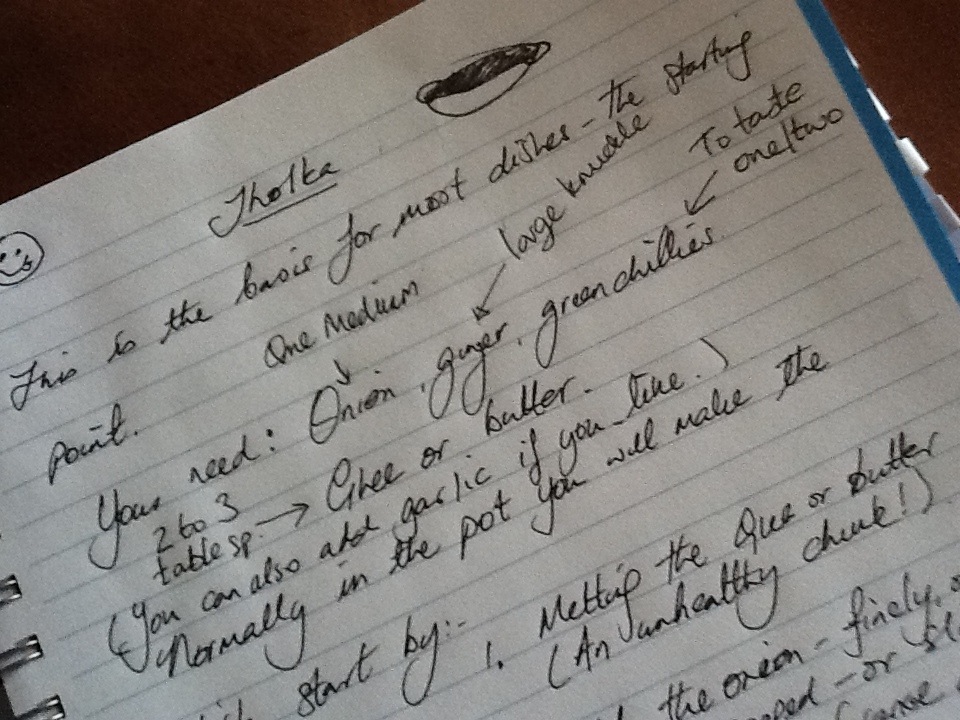 Tholka
This is the basis for most dishes - the starting
point.
One Medium
large knuckle
To taste
one/two
Your need: Onion, ginger, green chillies
2 to 3
tablesp. → Ghee or butter.
(You can also add garlic if you like.)
Normally in the pot you will make the
start by:-
1. Melting the Ghee or butter
(An unhealthy chunk!)
the onion - finely,
- or